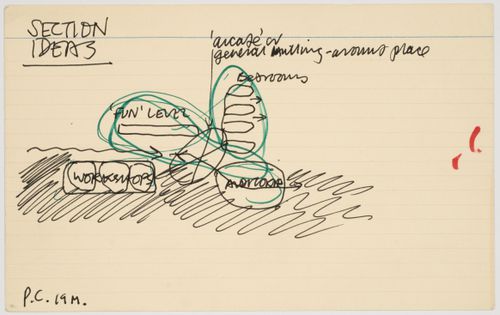 SECTION
IDEAS
'arcade' or
general milling-around place
Bedrooms
'FUN' LEVEL
WORKSHOPS
P.C. 19M.